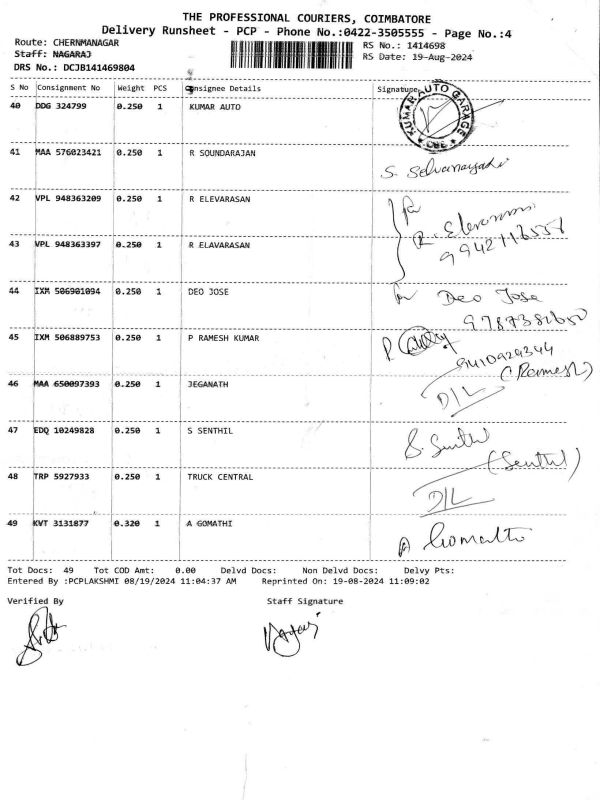 THE PROFESSIONAL COURIERS, COIMBATORE
Delivery Runsheet - PCP - Phone No.:0422-3505555 - Page No.:4
Route: CHERNMANAGAR
RS No.: 1414698
Staff: NAGARAJ
RS Date: 19-Aug-2024
DRS No.: DCJB141469804
S No Consignment No Weight PCS Consignee Details Signature
40 DDG 324799 0.250 1 KUMAR AUTO KUMAR AUTO GARAGE CBE
41 MAA 576023421 0.250 1 R SOUNDARAJAN S. Selvanayaki
42 VPL 948363209 0.250 1 R ELEVARASAN for
R. Elevarasan
43 VPL 948363397 0.250 1 R ELAVARASAN
44 IXM 506901094 0.250 1 DEO JOSE for Deo Jose
9787382650
45 IXM 506889753 0.250 1 P RAMESH KUMAR
9410929344
(Ramesh)
46 MAA 650097393 0.250 1 JEGANATH D/L
47 EDQ 10249828 0.250 1 S SENTHIL S. Senthil
(Senthil)
48 TRP 5927933 0.250 1 TRUCK CENTRAL D/L
49 KVT 3131877 0.320 1 A GOMATHI A Gomathi
Tot Docs: 49 Tot COD Amt: 0.00 Delvd Docs: Non Delvd Docs: Delvy Pts:
Entered By :PCPLAKSHMI 08/19/2024 11:04:37 AM Reprinted On: 19-08-2024 11:09:02
Verified By Staff Signature
Nagaraj